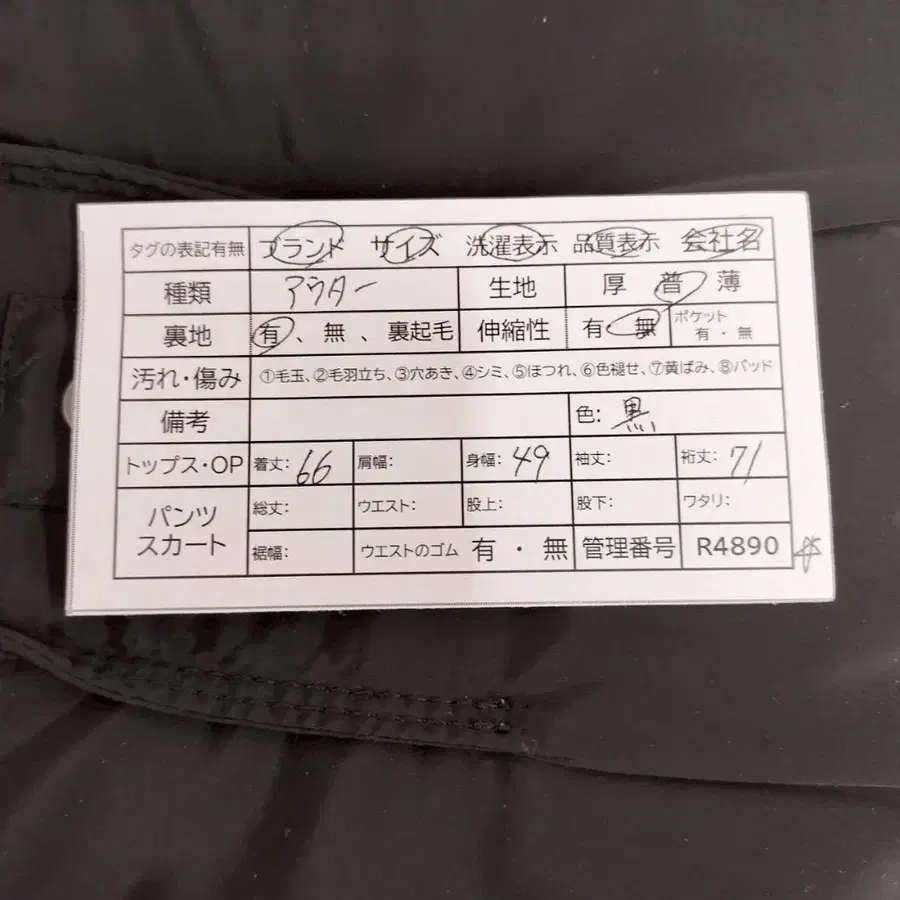 タグの表記有無 ブランド サイズ 洗濯表示 品質表示 会社名
種類 アウター 生地 厚 普 薄
裏地 有、無、裏起毛 伸縮性 有・無 ポケット 有・無
汚れ・傷み ①毛玉、②毛羽立ち、③穴あき、④シミ、⑤ほつれ、⑥色褪せ、⑦黄ばみ、⑧パッド
備考 色: 黒
トップス・OP 着丈: 66 肩幅: 身幅: 49 袖丈: 裄丈: 71
パンツ スカート 総丈: ウエスト: 股上: 股下: ワタリ:
裾幅: ウエストのゴム 有・無 管理番号 R4890